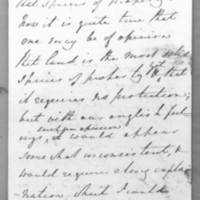 that species of property.
Now it is quite true that
one may be of opinion
that land is the most solid
species of property, & that
it requires no protection;
but with an English feel-
such an opinion
ings, it would appear
somewhat inconsistent, &
would require along expla-
-nation. And I could